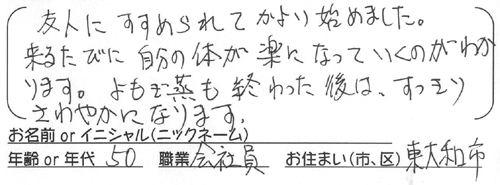 友人にすすめられてかよい始めました。
来るたびに自分の体が楽になっていくのがわか
ります。よもぎ蒸も終わった後は、すっきり
さわやかになります。
お名前 or イニシャル(ニックネーム)
年齢 or 年代 50 職業 会社員 お住まい(市、区) 東大和市